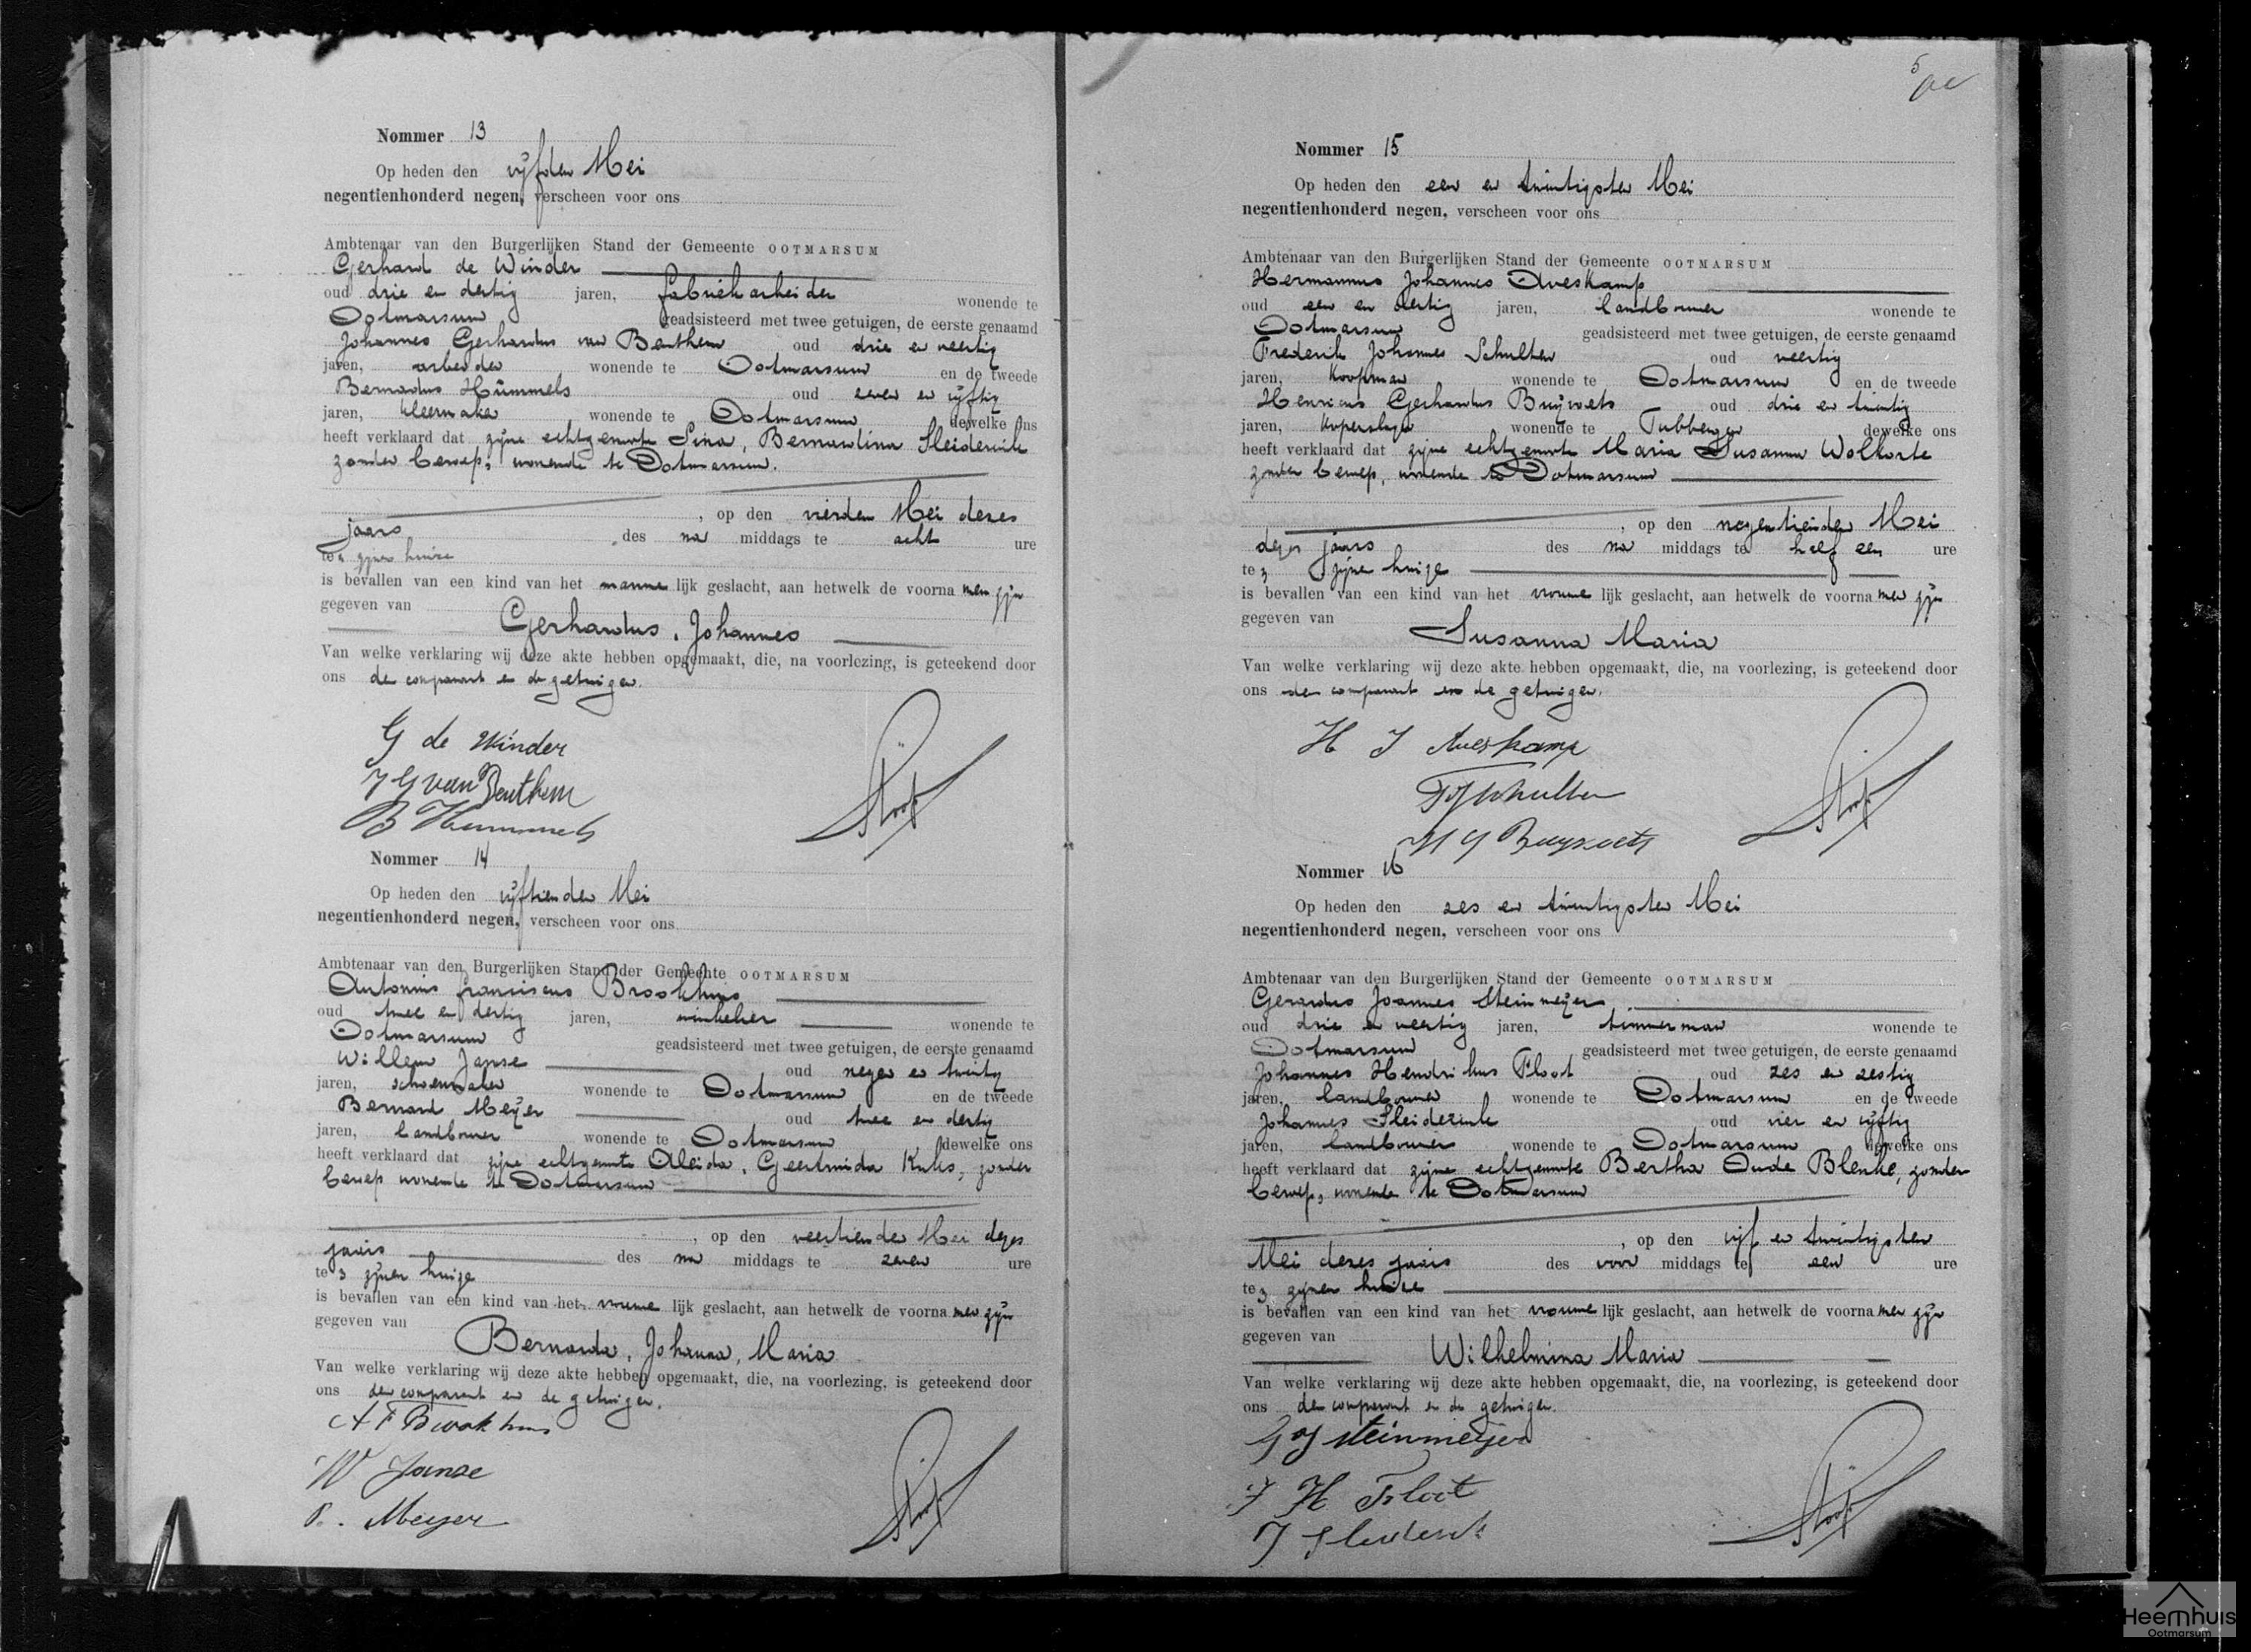 Nommer 13
Op heden den vijfden Mei
negentienhonderd negen, verscheen voor ons
Ambtenaar van den Burgerlijken Stand der Gemeente OOTMARSUM
Gerhard de Winder
oud drie en dertig jaren, fabriekarbeider wonende te
Ootmarsum geadsisteerd met twee getuigen, de eerste genaamd
Johannes Gerhardus van Benthem oud drie en veertig
jaren, arbeider wonende te Ootmarsum en de tweede
Bernardus Hümmels oud eenen en vijftig
jaren, kleermaker wonende te Ootmarsum dewelke ons
heeft verklaard dat zijne echtgenoote Sina, Bernardina Sleiderink
zonder beroep, wonende te Ootmarsum.
, op den vierden Mei dezes
jaars des na middags te acht ure
te zijnen huize
is bevallen van een kind van het manne lijk geslacht, aan hetwelk de voorna men zijn
gegeven van
Gerhardus, Johannes
Van welke verklaring wij deze akte hebben opgemaakt, die, na voorlezing, is geteekend door
ons den comparant en de getuigen.
G de Winder
J G van Benthem
B Hummels
Nommer 14
Op heden den vijftienden Mei
negentienhonderd negen, verscheen voor ons
Ambtenaar van den Burgerlijken Stand der Gemeente OOTMARSUM
Antonius franciscus Brookhuis
oud twee en dertig jaren, winkelier wonende te
Ootmarsum geadsisteerd met twee getuigen, de eerste genaamd
Willem Janse oud negen en twintig
jaren, schoenmaker wonende te Ootmarsum en de tweede
Bernard Meijer oud twee en dertig
jaren, landbouwer wonende te Ootmarsum dewelke ons
heeft verklaard dat zijne echtgenoote Aleida, Geertruida Kuks, zonder
beroep wonende te Ootmarsum
, op den veertienden Mei dezes
jaars des na middags te zeven ure
te zijnen huize
is bevallen van een kind van het vrouwe lijk geslacht, aan hetwelk de voorna men zijn
gegeven van
Bernarda, Johanna, Maria
Van welke verklaring wij deze akte hebben opgemaakt, die, na voorlezing, is geteekend door
ons den comparant en de getuigen.
A F Brookhuis
W Janse
B. Meijer
Nommer 15
Op heden den een en twintigsten Mei
negentienhonderd negen, verscheen voor ons
Ambtenaar van den Burgerlijken Stand der Gemeente OOTMARSUM
Hermannus Johannes Aveskamp
oud een en dertig jaren, landbouwer wonende te
Ootmarsum geadsisteerd met twee getuigen, de eerste genaamd
Frederik Johannes Schulten oud veertig
jaren, koopman wonende te Ootmarsum en de tweede
Henricus Gerhardus Buijvoets oud drie en twintig
jaren, koperslager wonende te Tubbergen dewelke ons
heeft verklaard dat zijne echtgenoote Maria Susanna Wolkorte
zonder beroep, wonende te Ootmarsum
, op den negentienden Mei
dezes jaars des na middags te half een ure
te zijnen huize
is bevallen van een kind van het vrouwe lijk geslacht, aan hetwelk de voorna men zijn
gegeven van
Susanna Maria
Van welke verklaring wij deze akte hebben opgemaakt, die, na voorlezing, is geteekend door
ons den comparant en de getuigen.
H J Aveskamp
F J Schulten
H G Buyvoets
Nommer 16
Op heden den zes en twintigsten Mei
negentienhonderd negen, verscheen voor ons
Ambtenaar van den Burgerlijken Stand der Gemeente OOTMARSUM
Gerardus Joannes Steinmeijer
oud drie en veertig jaren, timmerman wonende te
Ootmarsum geadsisteerd met twee getuigen, de eerste genaamd
Johannes Hendrikus Floot oud zes en zestig
jaren, landbouwer wonende te Ootmarsum en de tweede
Johannes Sleiderink oud vier en vijftig
jaren, landbouwer wonende te Ootmarsum dewelke ons
heeft verklaard dat zijne echtgenoote Bertha Oude Blenke, zonder
beroep, wonende te Ootmarsum
, op den vijf en twintigsten
Mei dezes jaars des voor middags te een ure
te zijnen huize
is bevallen van een kind van het vrouwe lijk geslacht, aan hetwelk de voorna men zijn
gegeven van
Wilhelmina Maria
Van welke verklaring wij deze akte hebben opgemaakt, die, na voorlezing, is geteekend door
ons den comparant en de getuigen.
G J Steinmeijer
J H Floot
J Sleiderink
Heemhuis
Ootmarsum